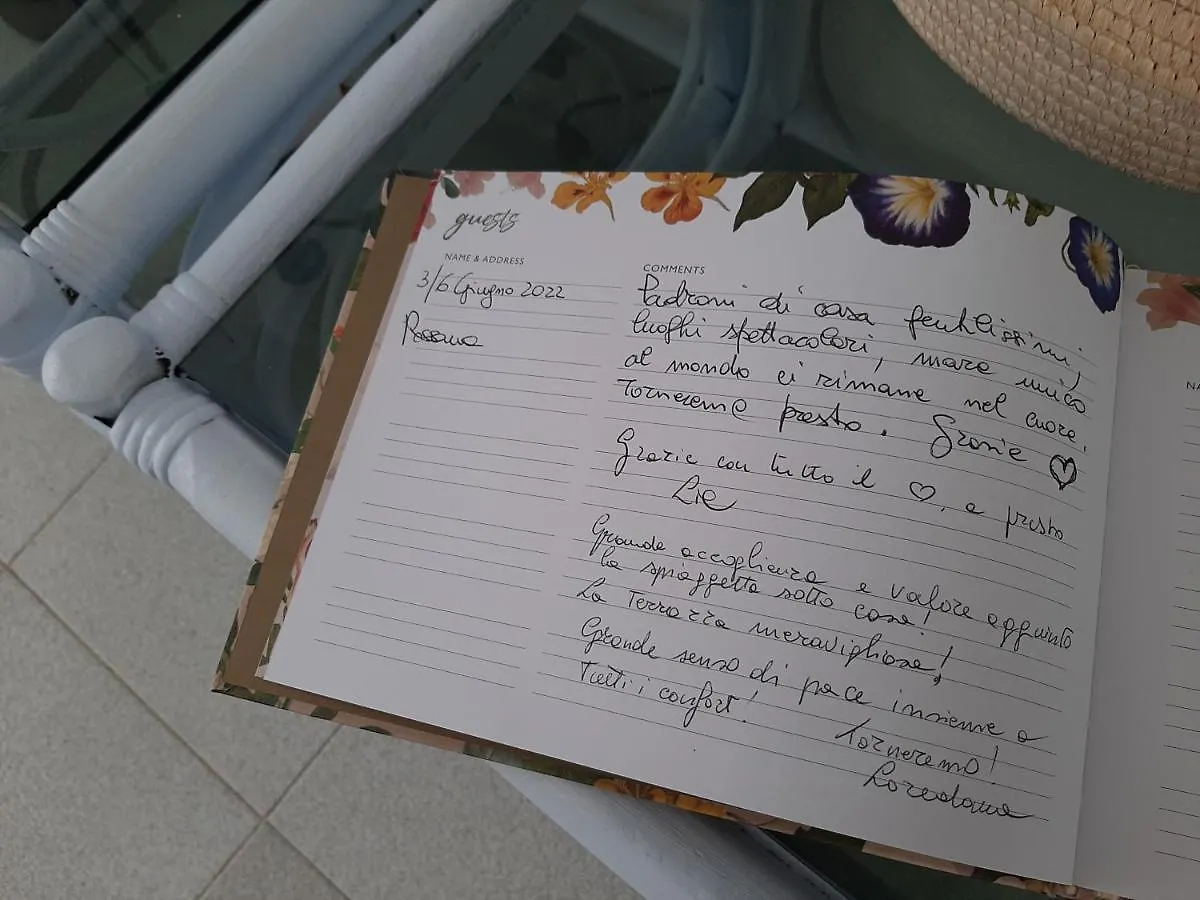 guests
NAME & ADDRESS
3/6 Giugno 2022
Rosanna
COMMENTS
Padroni di casa gentilissimi,
luoghi spettacolari, mare unico
al mondo ci rimane nel cuore.
Torneremo presto. Grazie ♡
Grazie con tutto il ♡, a presto
Grande accoglienza e valore aggiunto
la spiaggetta sotto casa!
La Terrazza meravigliosa!
Grande senso di pace insieme a
Tutti i confort!
Torneremo!
Loredana
NA